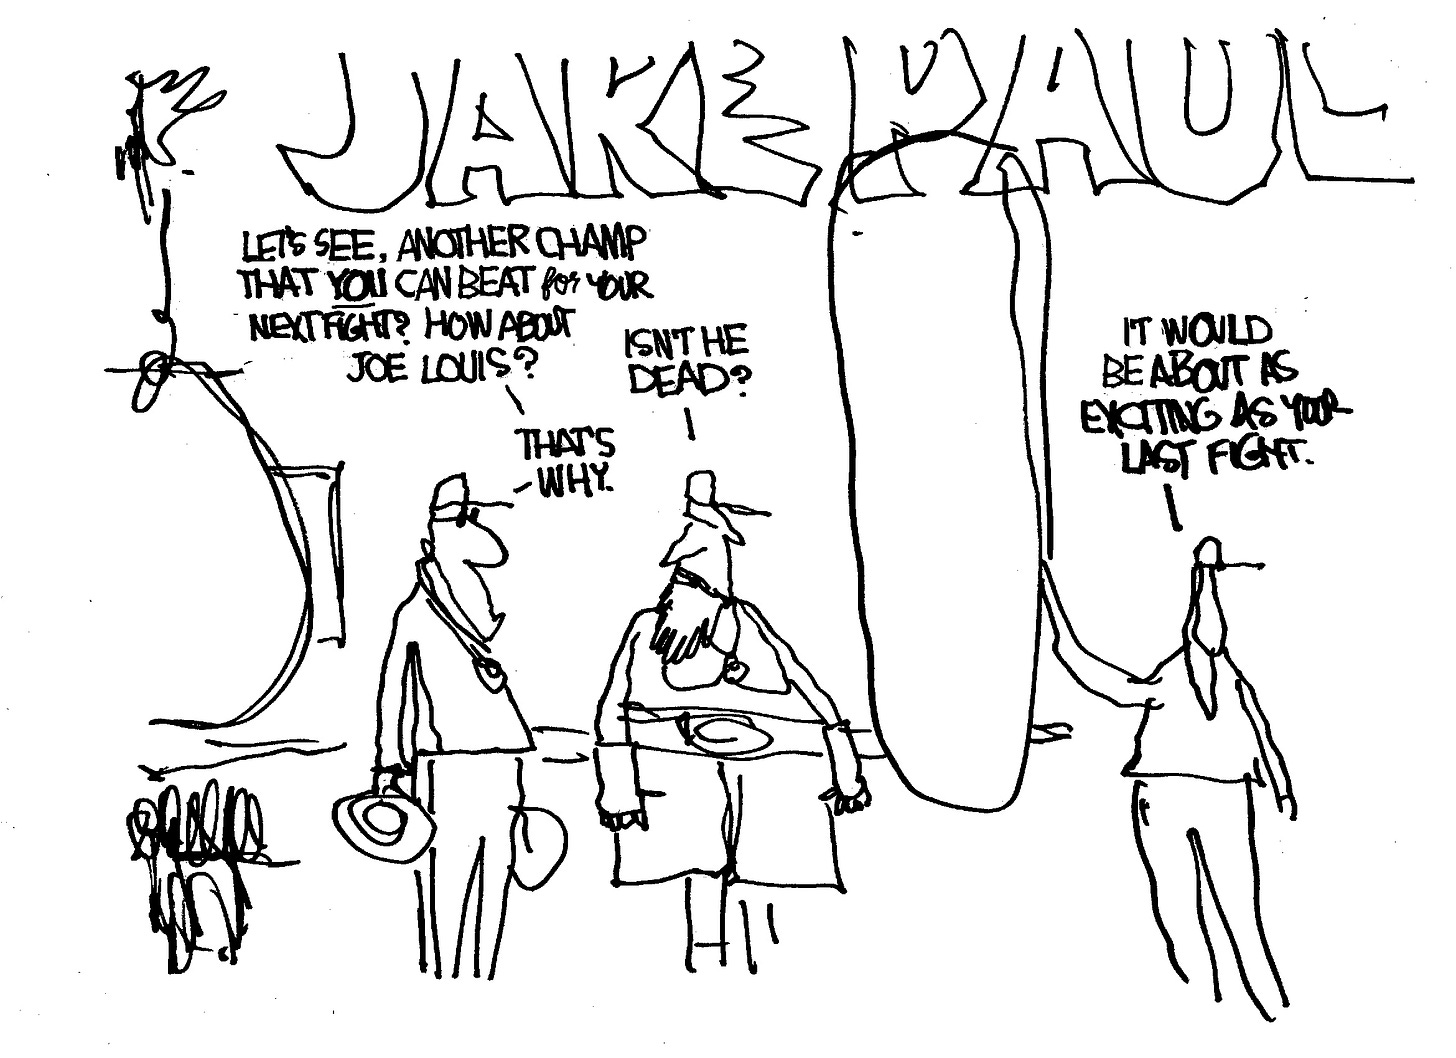 JAKE PAUL
LET'S SEE, ANOTHER CHAMP
THAT YOU CAN BEAT for YOUR
NEXT FIGHT? HOW ABOUT
JOE LOUIS?
ISN'T HE
DEAD?
THAT'S
WHY.
IT WOULD
BE ABOUT AS
EXCITING AS YOUR
LAST FIGHT.